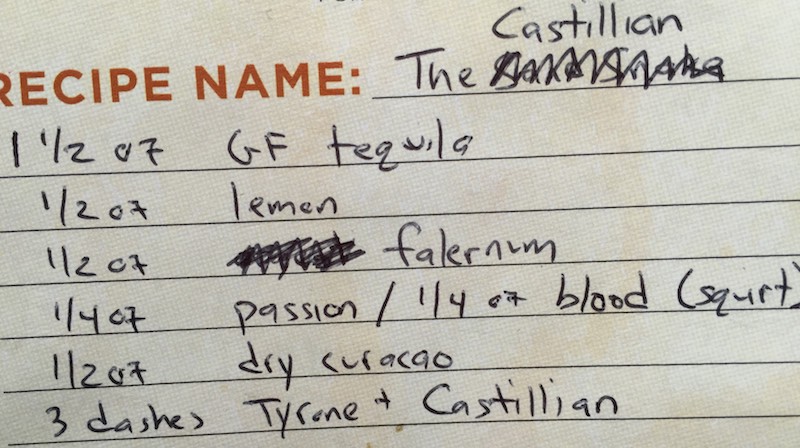 Castillian
RECIPE NAME: The
1 1/2 oz GF tequila
1/2 oz lemon
1/2 oz falernum
1/4 oz passion / 1/4 oz blood (squirt)
1/2 oz dry curacao
3 dashes Tyrone + Castillian